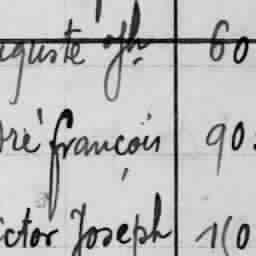 uguste Jph 60
dré françois 90
ictor Joseph 110